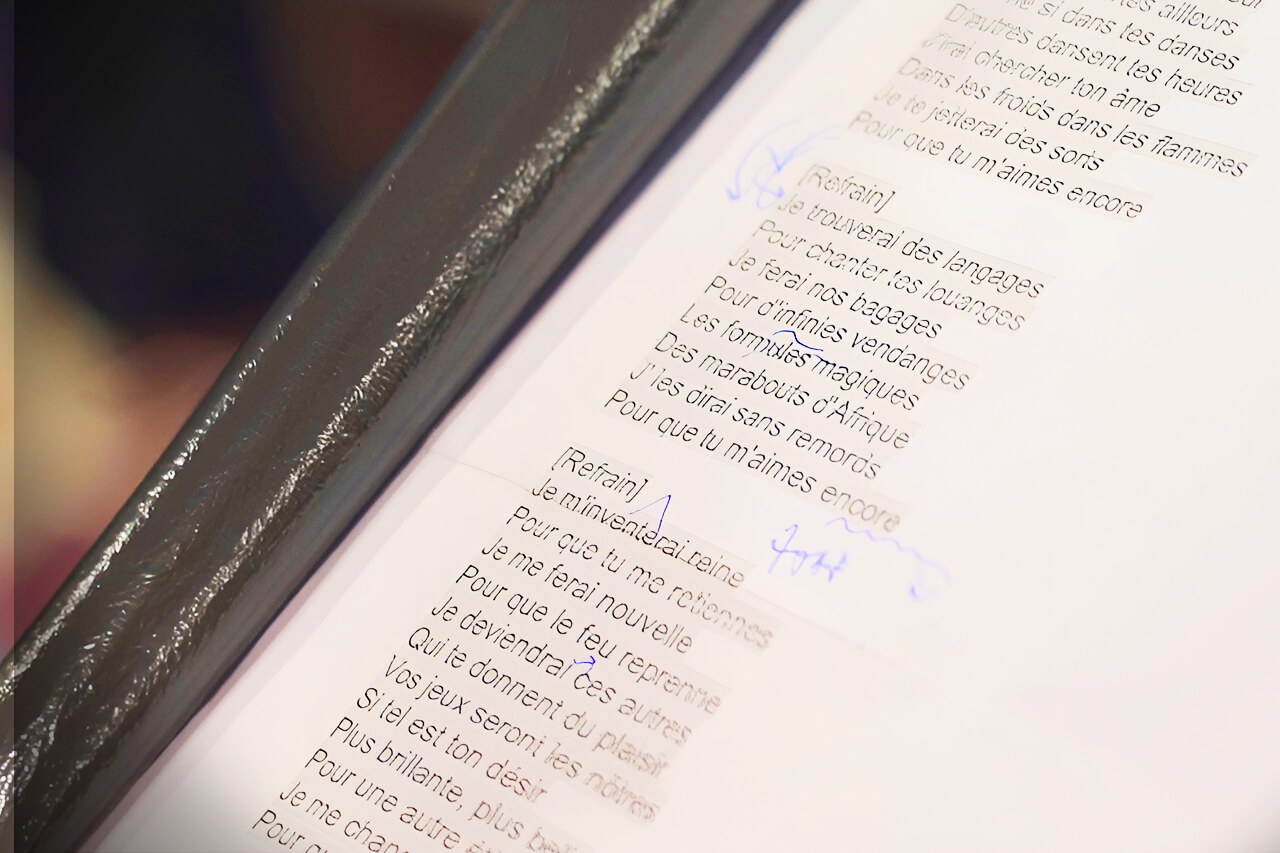 ailleurs
si dans tes danses
D'autres dansent tes heures
J'irai chercher ton âme
Dans les froids dans les flammes
Je te jetterai des sorts
Pour que tu m'aimes encore
[Refrain]
Je trouverai des langages
Pour chanter tes louanges
Je ferai nos bagages
Pour d'infinies vendanges
Les formules magiques
Des marabouts d'Afrique
J'les dirai sans remords
Pour que tu m'aimes encore
[Refrain]
Je m'inventerai reine
Pour que tu me retiennes
Je me ferai nouvelle
Pour que le feu reprenne
Je deviendrai ces autres
Qui te donnent du plaisir
Vos jeux seront les nôtres
Si tel est ton désir
Plus brillante, plus bel
Pour une autre
Je me chan
Pour